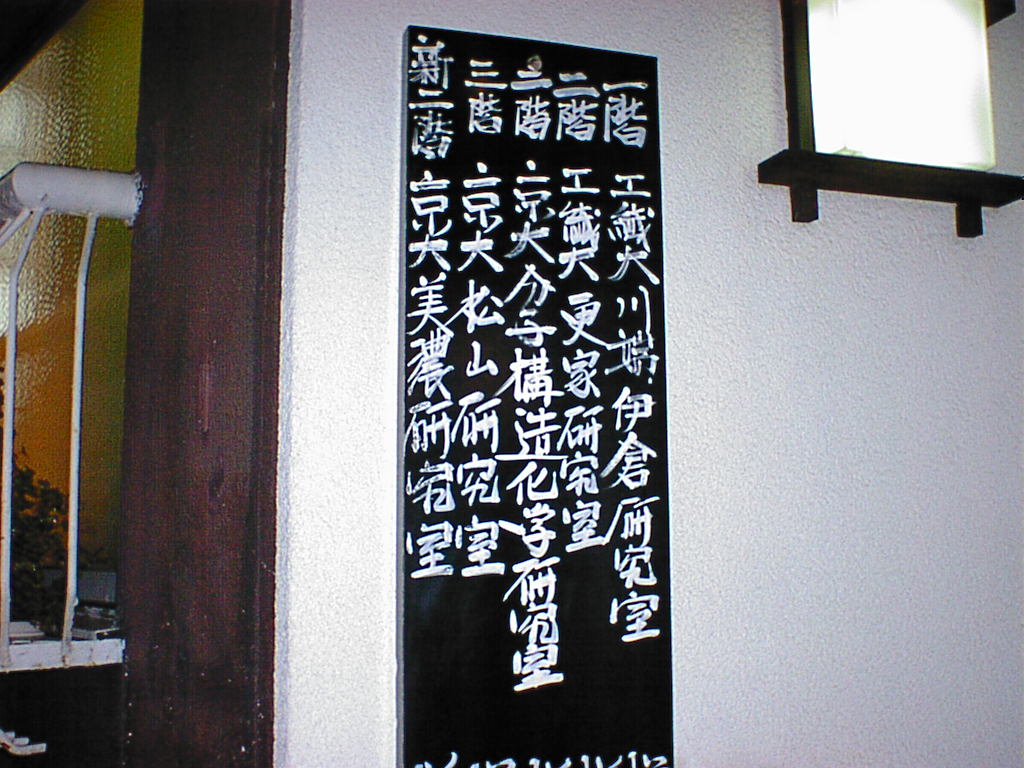 一階 工繊大 川端・伊倉研究室
二階 工繊大 更家研究室
二階 京大分子構造化学研究室
三階 京大 松山研究室
新二階 京大美濃研究室